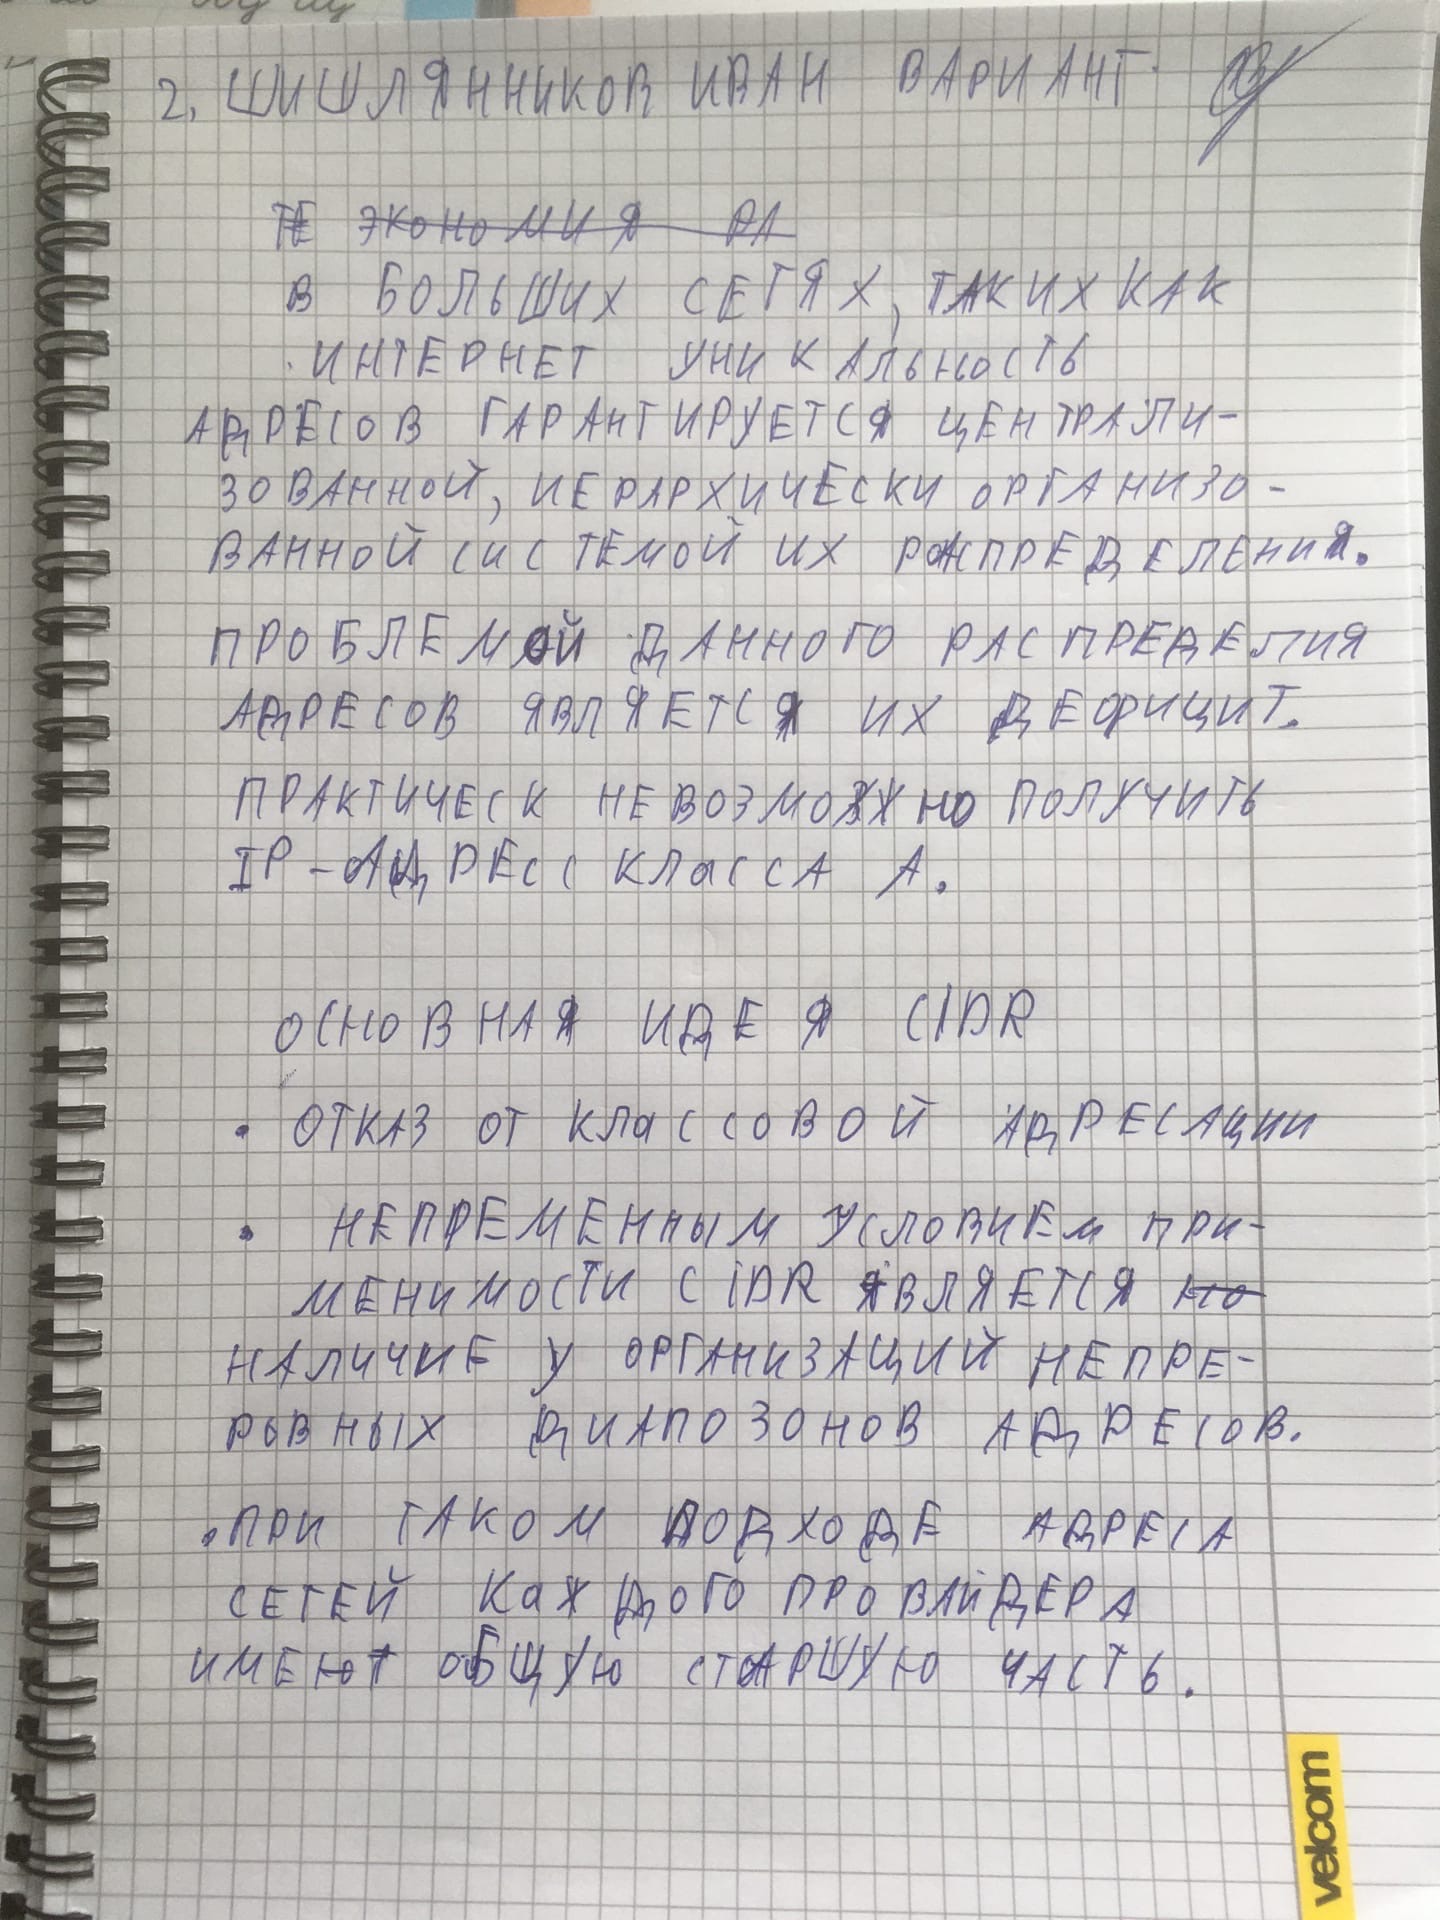 2. ШИШЛЯННИКОВ ИВАН ВАРИАНТ
ТЕ ЭКОНОМИЯ
В БОЛЬШИХ СЕТЯХ, ТАКИХ КАК
ИНТЕРНЕТ УНИКАЛЬНОСТЬ
АДРЕСОВ ГАРАНТИРУЕТСЯ ЦЕНТРАЛИ-
ЗОВАННОЙ, ИЕРАРХИЧЕСКИ ОРГАНИЗО-
ВАННОЙ СИСТЕМОЙ ИХ РАСПРЕДЕЛЕНИЯ.
ПРОБЛЕМОЙ ДАННОГО РАСПРЕДЕЛИЯ
АДРЕСОВ ЯВЛЯЕТСЯ ИХ ДЕФИЦИТ.
ПРАКТИЧЕСК НЕВОЗМОЖНО ПОЛУЧИТЬ
IP-АДРЕСС КЛАССА А.
ОСНОВНАЯ ИДЕЯ CIDR
• ОТКАЗ ОТ КЛАССОВОЙ АДРЕСАЦИИ
• НЕПРЕМЕННЫМ УСЛОВИЕМ ПРИ-
МЕНИМОСТИ CIDR ЯВЛЯЕТСЯ НО
НАЛИЧИЕ У ОРГАНИЗАЦИЙ НЕПРЕ-
РЫВНЫХ ДИАПОЗОНОВ АДРЕСОВ.
• ПРИ ТАКОМ ПОДХОДЕ АДРЕСА
СЕТЕЙ КАЖДОГО ПРОВАЙДЕРА
ИМЕЮТ ОБЩУЮ СТАРШУЮ ЧАСТЬ.
velcom